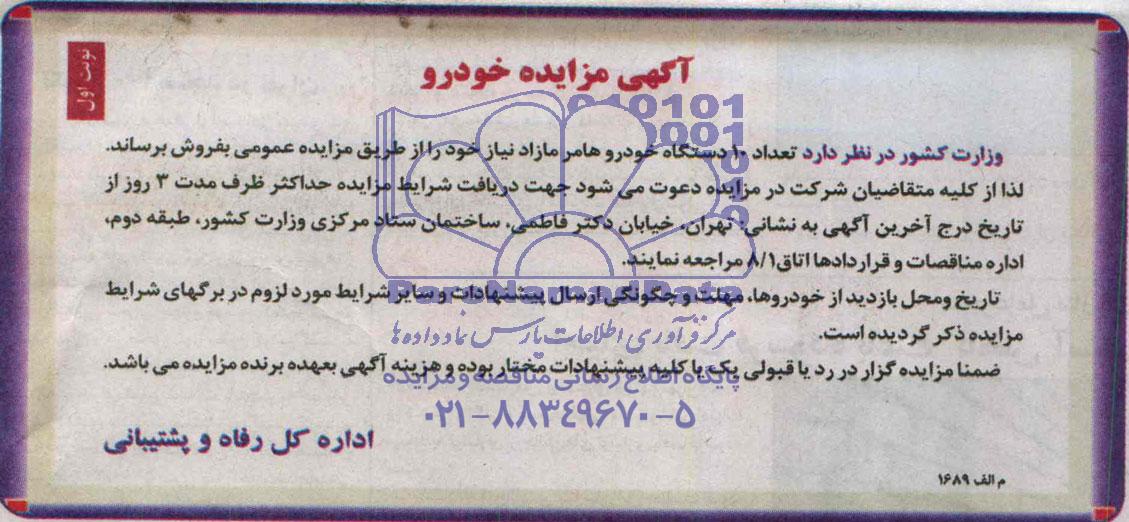 آگهی مزایده خودرو
نوبت اول
وزارت کشور در نظر دارد تعداد ۱۰ دستگاه خودرو هامر مازاد نیاز خود را از طریق مزایده عمومی بفروش برساند.
لذا از کلیه متقاضیان شرکت در مزایده دعوت می شود جهت دریافت شرایط مزایده حداکثر ظرف مدت ۳ روز از
تاریخ درج آخرین آگهی به نشانی: تهران، خیابان دکتر فاطمی، ساختمان ستاد مرکزی وزارت کشور، طبقه دوم،
اداره مناقصات و قراردادها اتاق ۸/۱ مراجعه نمایند.
تاریخ ومحل بازدید از خودروها، مهلت و چگونگی ارسال پیشنهادات و سایر شرایط مورد لزوم در برگهای شرایط
مزایده ذکر گردیده است.
ضمنا مزایده گزار در رد یا قبولی یک یا کلیه پیشنهادات مختار بوده و هزینه آگهی بعهده برنده مزایده می باشد.
اداره کل رفاه و پشتیبانی
م الف ۱۶۸۹
010101
0001
Pars Namad Data
مرکز فرآوری اطلاعات پارس نماد داده ها
پایگاه اطلاع رسانی مناقصه و مزایده
۰۲۱-۸۸۳۴۹۶۷۰-۵